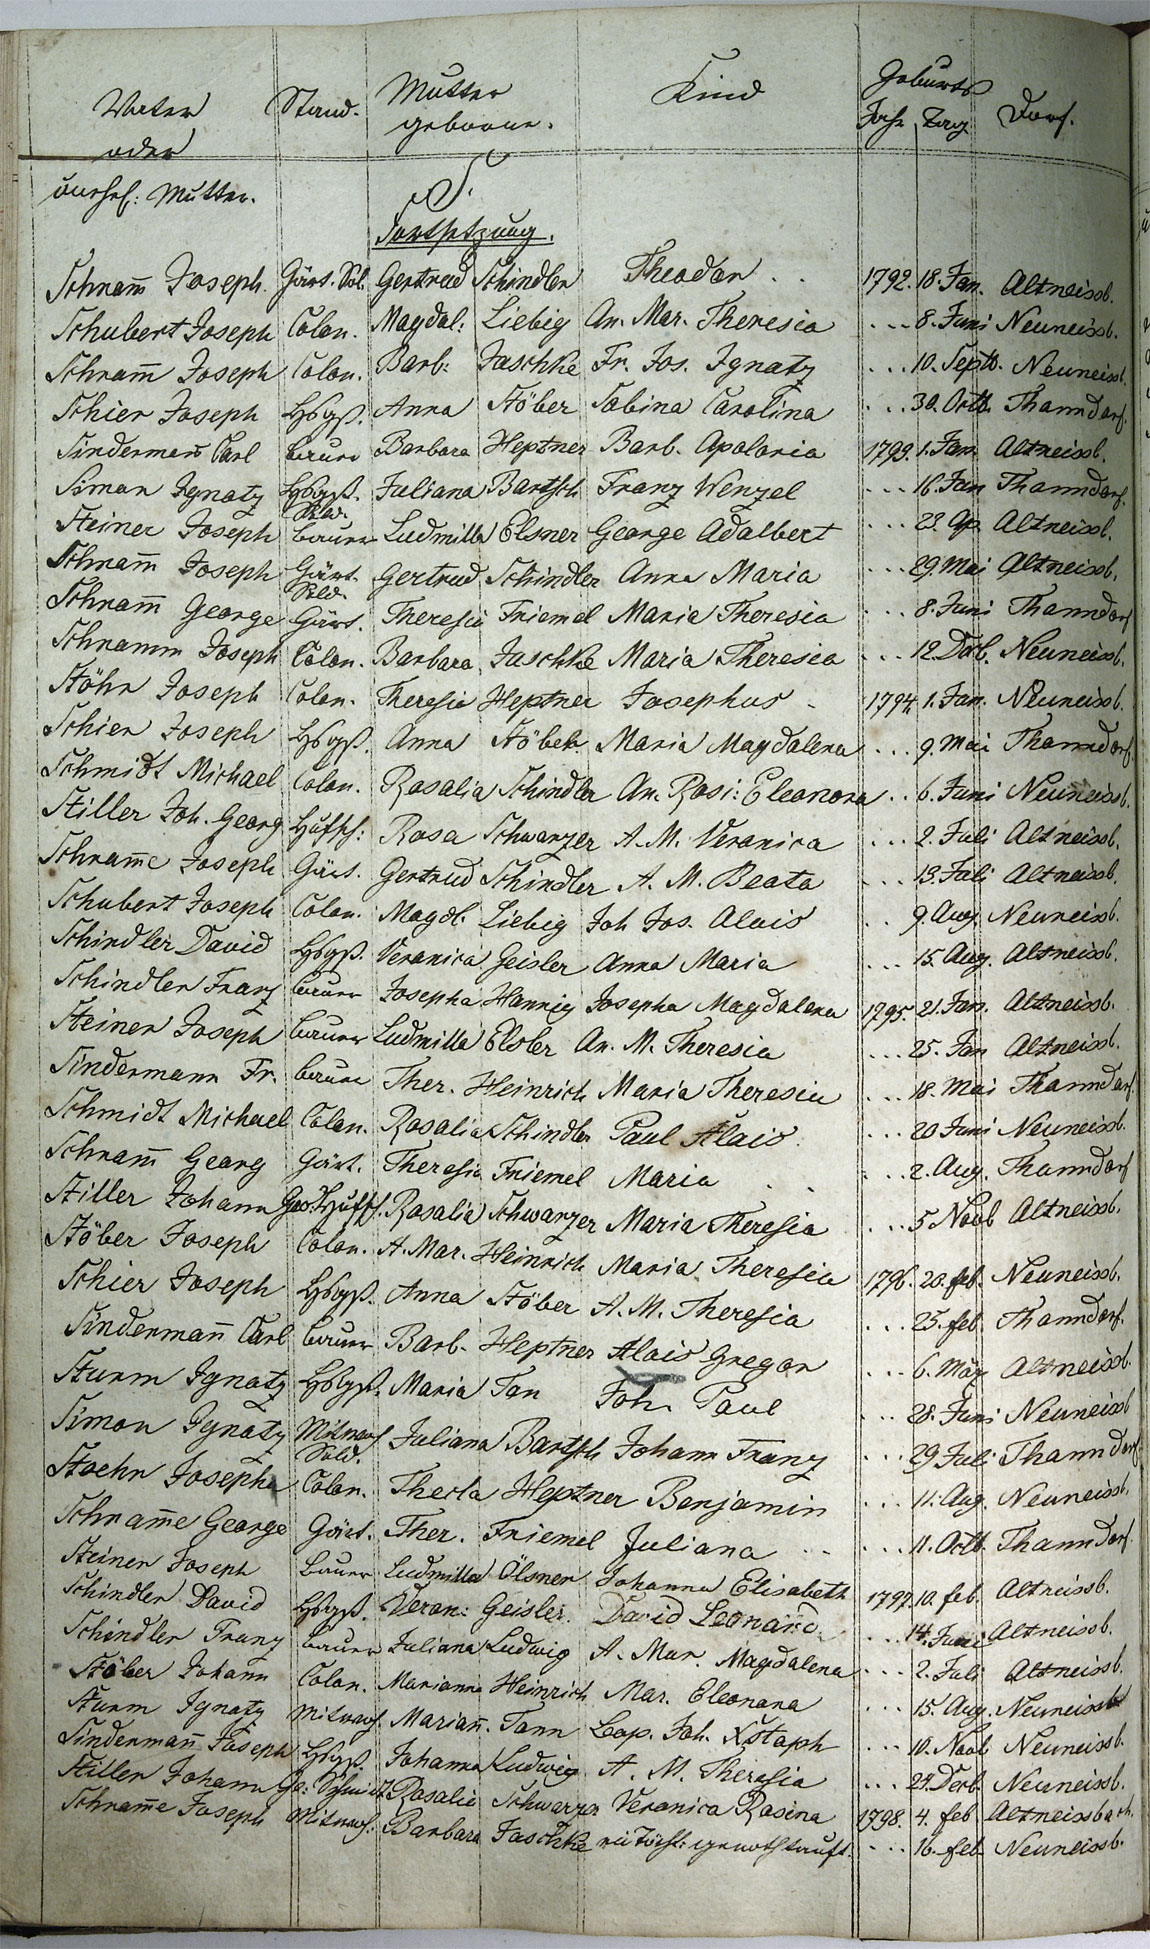 Vater Stand. Mutter Kind Geburts Dorf.
oder geborne. Jahr Tag
unehel: Mutter.
S.
Fortsetzung.
Schram̄ Joseph. Gärt. Sol. Gertrud Schindler Theodor . . 1792. 18. Jan. Altneissb.
Schubert Joseph Colon. Magdal: Liebig An. Mar. Theresia ... 8. Juni Neuneissb.
Schram̄ Joseph Colon. Barb: Jaschke Fr. Jos. Ignatz ... 10. Septb. Neuneissb.
Schier Joseph Hbgß. Anna Stöber Sabina Carolina ... 30. Octb. Thanndorf.
Sinderman̄ Carl Bauer Barbara Heptner Barb. Apolonia 1793. 1. Jan. Altneissb.
Simon Ignatz Hbgß. Sold. Juliana Bartsch Franz Wenzel ... 16. Jan Thanndorf.
Steiner Joseph Bauer Ludmilla Elsner George Adalbert ... 23. Ap. Altneissb.
Schram̄ Joseph Gärt. Sold. Gertrud Schindler Anna Maria ... 29. Mai Altneissb.
Schram̄ George Gärt. Theresia Friemel Maria Theresia ... 8. Juni Thanndorf
Schramm Joseph Colon. Barbara Jaschke Maria Theresia ... 12. Decb. Neuneissb.
Stöhr Joseph Colon. Theresia Heptner Josephus - 1794. 1. Jan. Neuneissb.
Schier Joseph Hbgß. Anna Stöber Maria Magdalena ... 9. Mai Thanndorf
Schmidt Michael Colon. Rosalia Schindler An. Rosi: Eleonora .. 6. Juni Neuneissb.
Stiller Joh. Georg Hufsch: Rosa Schwarzer A. M. Veronica ... 2. Juli Altneissb.
Schram̄e Joseph Gärt. Gertrud Schindler A. M. Beata ... 13. Juli Altneissb.
Schubert Joseph Colon. Magdl. Liebig Joh Jos. Alois . 9. Aug. Neuneissb.
Schindler David Hbgß. Veronica Geisler Anna Maria ... 15. Aug. Altneissb.
Schindler Franz Bauer Josepha Hannig Josepha Magdalena 1795 21. Jan. Altneissb.
Steiner Joseph Bauer Ludmilla Elsler An. M. Theresia ... 25. Jan Altneissb.
Sindermann Fr. Bauer Ther. Heinrich Maria Theresia ... 18. Mai Thanndorf.
Schmidt Michael Colon. Rosalia Schindler Paul Alois ... 20 Juni Neuneissb.
Schram̄ Georg Gärt. Theresia Friemel Maria . . ... 2. Aug. Thanndorf
Stiller Johann Geo. Hufsch. Rosalia Schwarzer Maria Theresia ... 5 Novb Altneissb.
Stöber Joseph Colon. A. Mar. Heinrich Maria Theresia 1796. 20. feb. Neuneissb.
Schier Joseph Hbgß. Anna Stöber A. M. Theresia ... 25. feb. Thanndorf.
Sinderman̄ Carl Bauer Barb. Heptner Alois Gregor ... 6. März Altneissb.
Sturm Ignatz Hbgß. Maria Tan Joh. Paul ... 28. Juni Neuneissb
Simon Ignatz Mitnach. Sold. Juliana Bartsch Johann Franz ... 29 Juli Thanndorf.
Stoehr Josepha Colon. Thecla Heptner Benjamin ... 11. Aug. Neuneissb.
Schram̄e George Gärt. Ther. Friemel Juliana ... 11. Octb. Thanndorf.
Steiner Joseph Bauer Ludmilla Ölsner Johanna Elisabeth 1797. 10. feb. Altneissb.
Schindler David Hbgß. Veron: Geisler. David Leonard ... 14. Juni Altneissb.
Schindler Franz Bauer Juliana Ludwig A. Mar. Magdalena ... 2. Juli Altneissb.
Stöber Johann Colon. Marianna Heinrich Mar. Eleonora ... 15. Aug. Neuneissb
Sturm Ignatz Mitnach. Marian̄. Tann Leop. Joh. Xstoph ... 10. Novb Neuneissb.
Sinderman̄ Joseph Hbgß. Johanna Ludwig A. M. Theresia ... 29. Decb. Neuneissb.
Stiller Johann Ge: Schmidt Rosalie Schwarzer Veronica Rosina 1798. 4. feb Altneissbach.
Schram̄e Joseph Mitnach: Barbara Jaschke ein Töcht: genothtauft. ... 16. feb. Neuneissb.